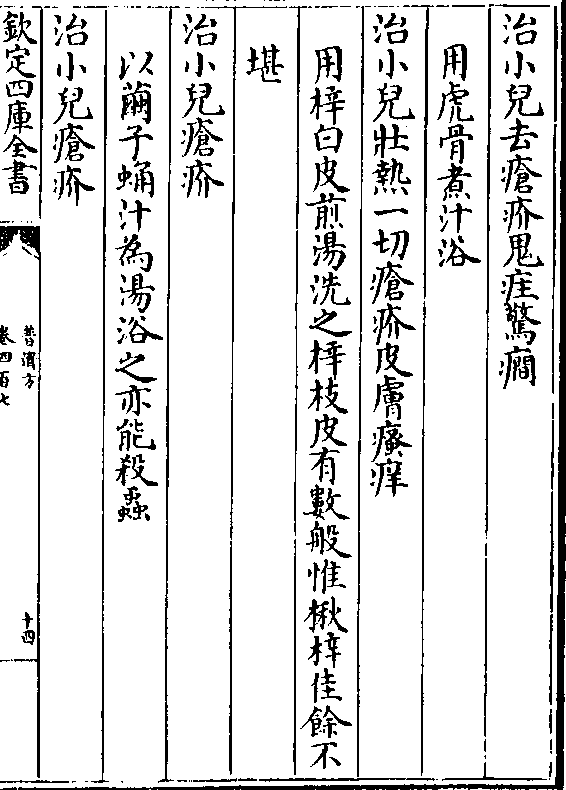 治小兒去瘡疥鬼疰驚癇
用虎骨煮汁浴
治小兒壯熱一切瘡疥皮膚瘙痒
用梓白皮煎湯洗之梓枝皮有數般惟楸梓佳餘不
堪
治小兒瘡疥
以繭子蛹汁為湯浴之亦能殺蟲
治小兒瘡疥
欽定四庫全書
普濟方
卷四百七
十四